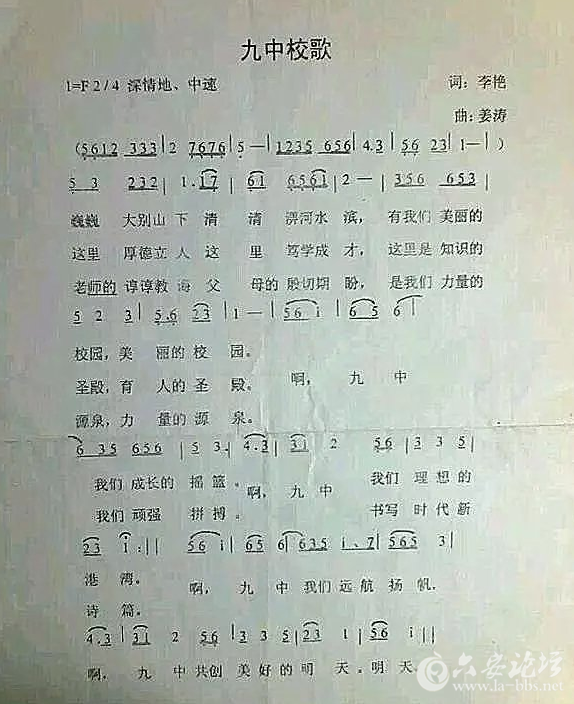 九中校歌
1=F 2/4 深情地、中速 词：李艳
曲：姜涛
(5612 333 | 2 7676 | 5 — | 1235 656 | 4.3 | 56 23 | 1— | )
5 3 232 | 1.17 | 61 6561 | 2 — | 356 653 |
巍巍 大别山 下 清 清 淠河水 滨， 有我们 美丽的
这里 厚德立 人 这 里 笃学成 才， 这里是 知识的
老师的 谆谆教 诲 父 母的 殷切期 盼， 是我们 力量的
5 2 3 | 5.6 23 | 1 — | 56 i | 6 5 6 |
校园，美 丽的 校 园。
圣殿，育 人的 圣 殿。 啊， 九 中
源泉，力 量的 源 泉。
6 35 656 | 5 3. | 4.3 | 31 2 56 | 3 3 5 |
我们 成长的 摇 篮。 啊，九 中 我们 理 想的
我们 顽强 拼 搏。 书写 时 代 新
23 i :|| 56 i | 65 6 | 635 i、7 | 565 3 |
港 湾。 啊， 九 中 我们 远 航 扬 帆.
诗 篇。
4.3 | 31 2 56 | 3 3 5 | 23 1 | 56 i |
啊， 九 中 共创 美 好 的 明 天。明 天、
六安论坛
www.la-bbs.net